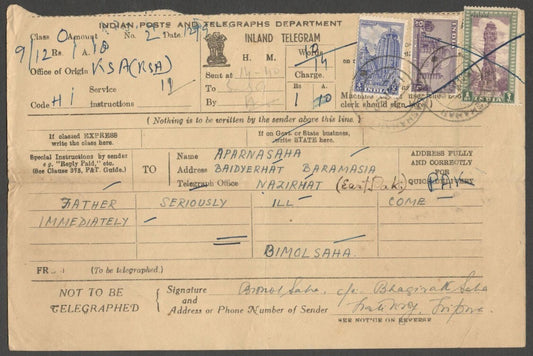 INDIAN POSTS AND TELEGRAPHS DEPARTMENT
Class O Amount No. 2 Date
INLAND TELEGRAM
9/12 Rs. A.
H. M.
Words
Office of Origin KSA (KSA)
Sent at 14-40
Charge.
Service
To
Rs A.
Code Hi instructions
By
1 10
clerk should sign here
INDIA
INDIA
INDIA
(Nothing is to be written by the sender above this line.)
If classed EXPRESS
write the class here.
If on Govt. or State business,
write STATE here.
Special Instructions by sender
e.g. "Reply Paid," etc.
(See Clause 373, P&T. Guide.)
TO
Name APARNASAHA
Address BAIDYERHAT BARAMASIA
Telegraph Office NAZIRHAT (East Pak)
ADDRESS FULLY
AND CORRECTLY
FOR
QUICK DELIVERY
FATHER SERIOUSLY ILL COME
IMMEDIATELY
BIMOLSAHA
FR (To be telegraphed.)
NOT TO BE
TELEGRAPHED
Signature Bimol Saha, c/o Bhagirath Saha
and
Address or Phone Number of Sender Tripura
SEE NOTICE ON REVERSE